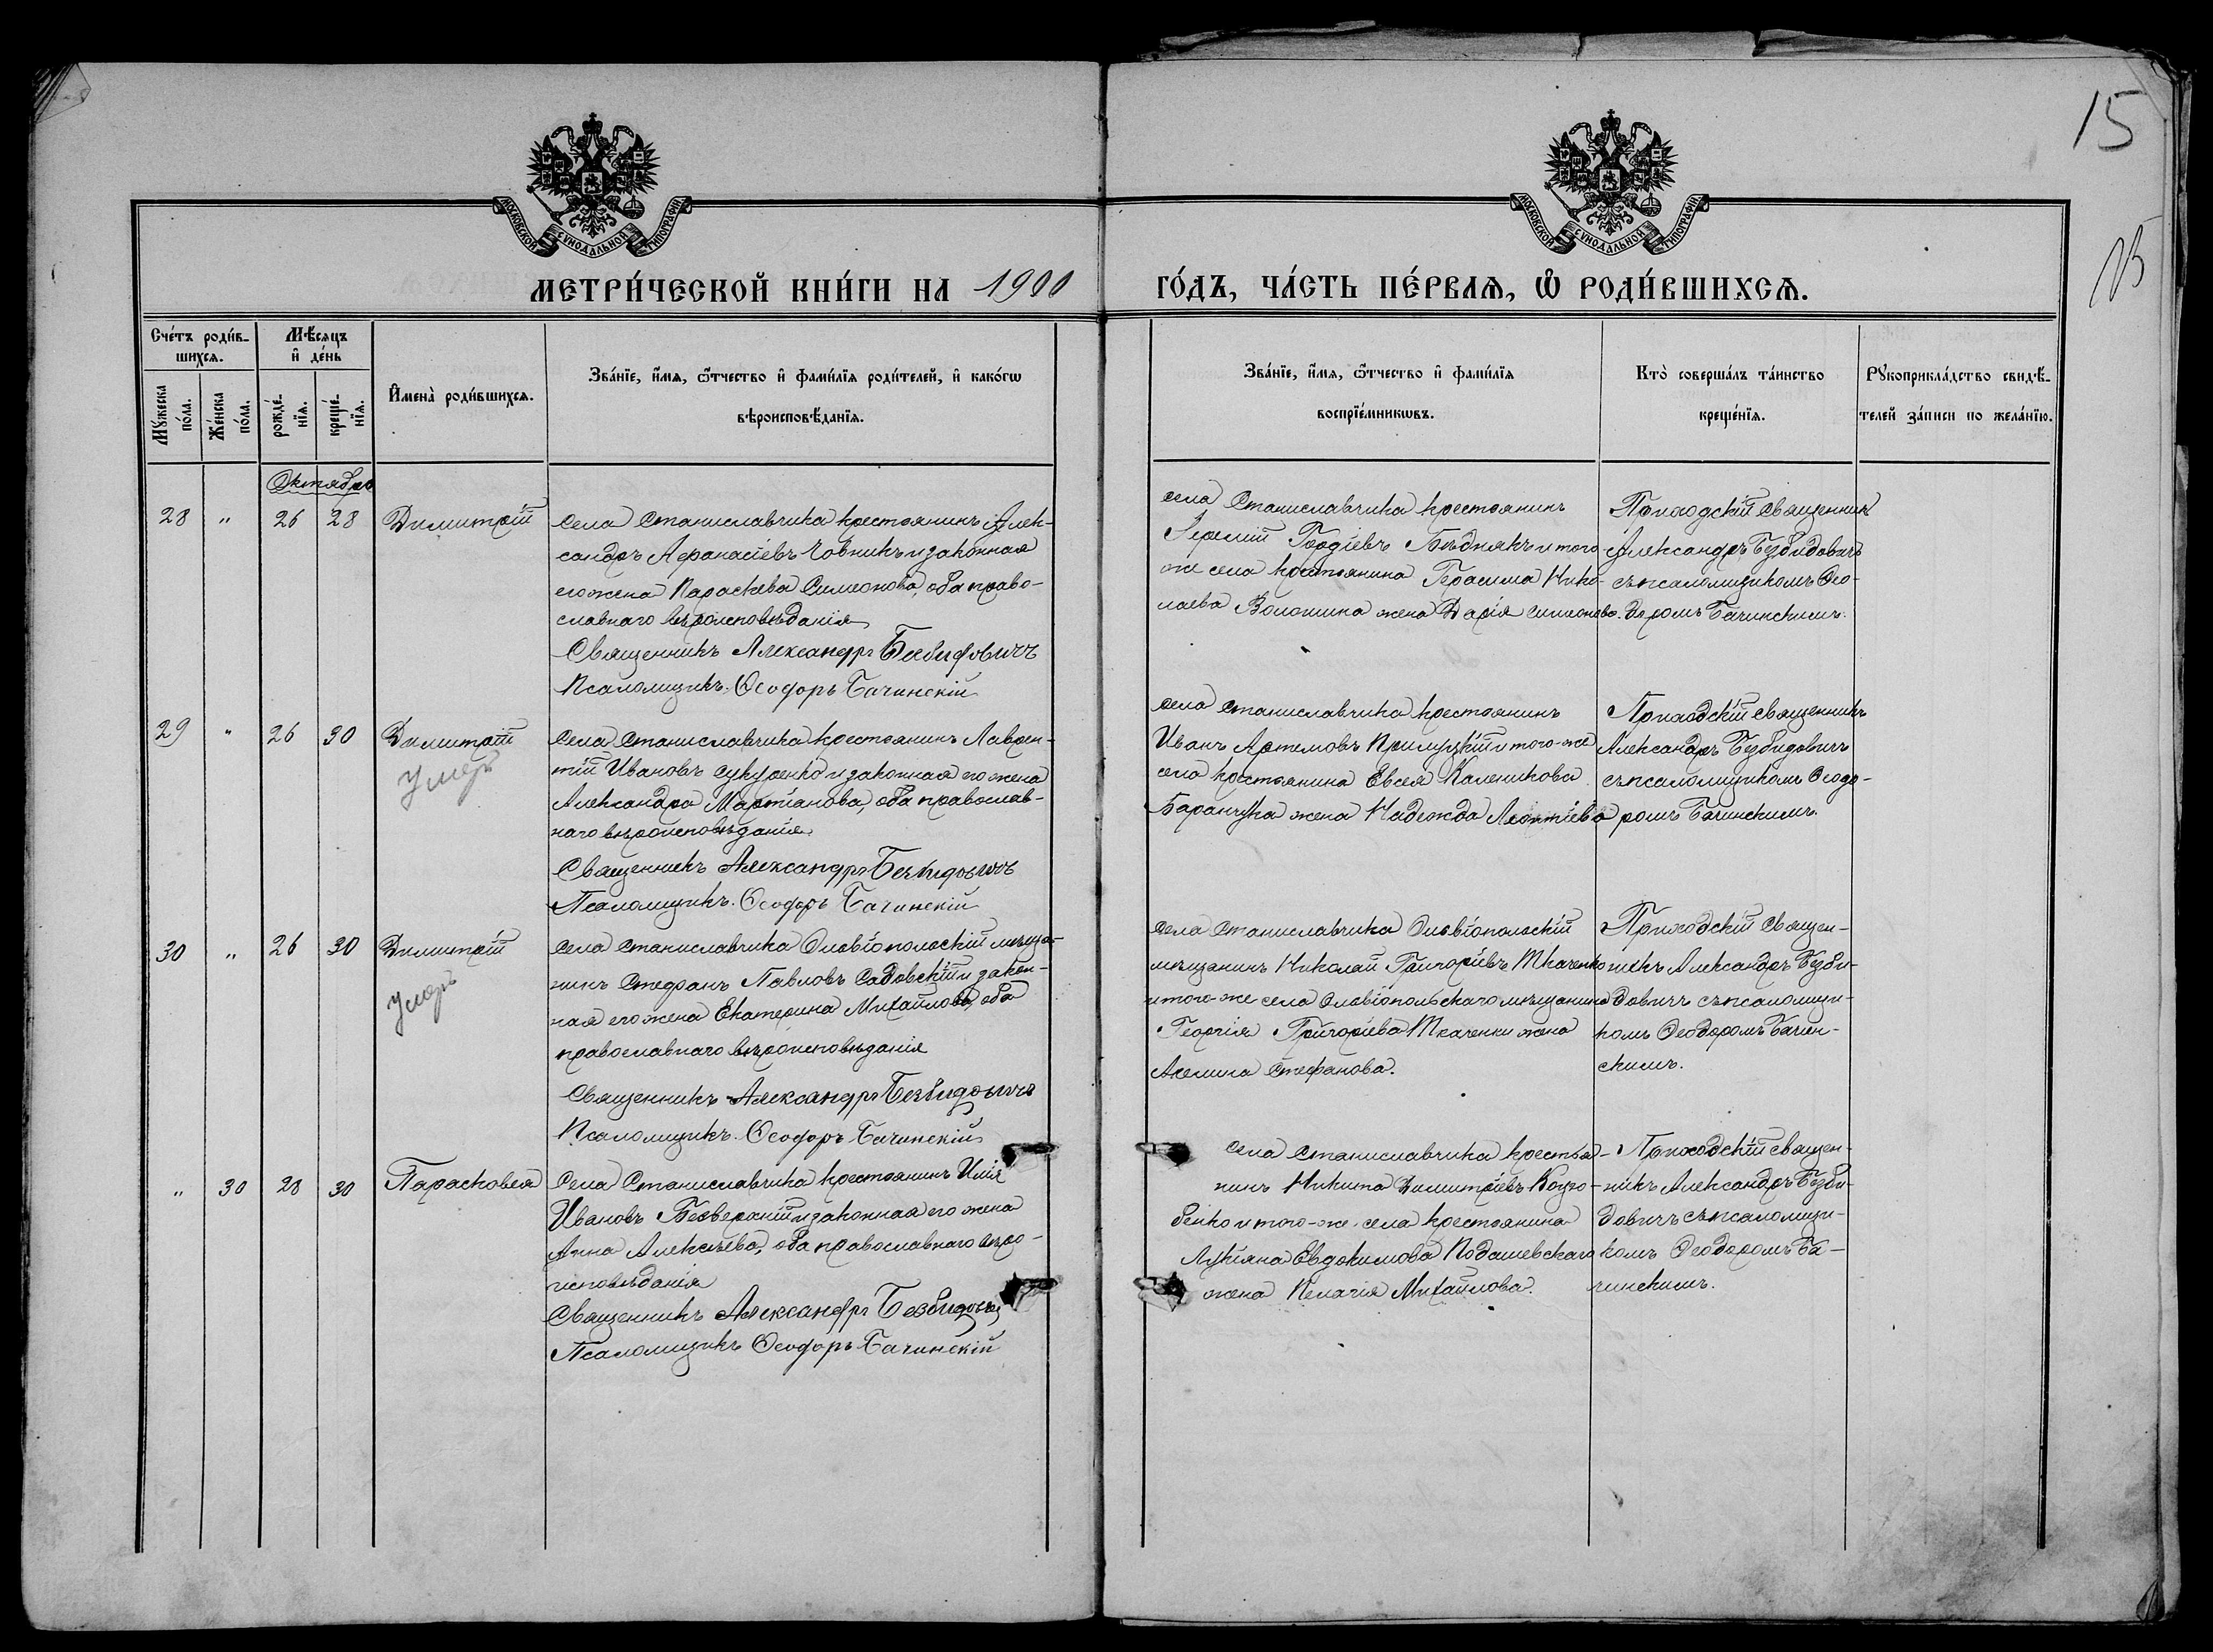 15
15
МОСКОВСКОЙ СѴНОДАЛЬНОЙ ТИПОГРАФІИ
МОСКОВСКОЙ СѴНОДАЛЬНОЙ ТИПОГРАФІИ
МЕТРИ́ЧЕСКОЙ КНИ́ГИ НА 1900
ГО́ДЪ, ЧА́СТЬ ПЕ́РВАѦ, Ѡ҆ РОДИ́ВШИХСѦ.
Сче́тъ роди́в-
шихсѧ.
Мѣ́сяцъ
и҆ де́нь
Мꙋ́жеска
по́ла.
Же́нска
по́ла.
рожде́-
нїѧ.
креще́-
нїѧ.
И҆мена̀ роди́вшихсѧ.
Зва́нїе, и҆́мѧ, ѻ҆́тчество и҆ фами́лїѧ роди́телей, и҆ како́гѡ
вѣроисповѣ́данїѧ.
Зва́нїе, и҆́мѧ, ѻ҆́тчество и҆ фами́лїѧ
воспрїе́мникѡвъ.
Кто̀ соверша́лъ та́инство
креще́нїѧ.
Рꙋкоприкла́дство свидѣ́-
телей за́писи по жела́нїю.
Октябрь
28 " 26 28 Димитрій
Села Станиславчика крестьянинъ Алек-
сандръ Аѳанасіевъ Човникъ и законная
его жена Параскева Симеонова, оба право-
славнаго вѣроисповѣданія
Священникъ Александръ Безбидовичъ
Псаломщикъ Ѳеодоръ Бачинскій
села Станиславчика крестьянинъ
Іеремій Гордіевъ Бѣднякъ и того
же села крестьянина Герасима Нико-
лаева Волошина жена Дарія Симеонова.
Приходскій священникъ
Александръ Безбидовичъ
съ псаломщикомъ Ѳео-
доромъ Бачинскимъ.
29 " 26 30 Димитрій
умеръ
Села Станиславчика крестьянинъ Лаврен-
тій Ивановъ Сукуренко и законная его жена
Александра Мартіанова, оба православ-
наго вѣроисповѣданія
Священникъ Александръ Безбидовичъ
Псаломщикъ Ѳеодоръ Бачинскій
села Станиславчика крестьянинъ
Иванъ Артемовъ Прилуцкій и того-же
села крестьянина Евсея Каленикова
Баранчука жена Надежда Леонтіева
Приходскій священникъ
Александръ Безбидовичъ
съ псаломщикомъ Ѳеодо-
ромъ Бачинскимъ.
30 " 26 30 Димитрій
умеръ
Села Станиславчика Ольвіопольскій мѣща-
нинъ Стефанъ Павловъ Садовскій и закон-
ная его жена Екатерина Михайлова, оба
православнаго вѣроисповѣданія
Священникъ Александръ Безбидовичъ
Псаломщикъ Ѳеодоръ Бачинскій
Села Станиславчика Ольвіопольскій
мѣщанинъ Николай Григоріевъ Ткаченко
и того-же села Ольвіопольскаго мѣщанина
Георгія Григоріева Ткаченки жена
Акелина Стефанова.
Приходскій священ-
никъ Александръ Безби-
довичъ съ псаломщи-
комъ Ѳеодоромъ Бачин-
скимъ.
" 30 28 30 Парасковея
Села Станиславчика крестьянинъ Илія
Ивановъ Безверхній и законная его жена
Анна Алексѣева, оба православнаго вѣро-
исповѣданія
Священникъ Александръ Безбидовичъ
Псаломщикъ Ѳеодоръ Бачинскій
Села Станиславчика крестья-
нинъ Никита Димитріевъ Коцю-
бенко и того-же села крестьянина
Лукіана Евдокимова Подашевскаго
жена Пелагія Михайлова.
Приходскій священ-
никъ Александръ Безби-
довичъ съ псаломщи-
комъ Ѳеодоромъ Ба-
чинскимъ.